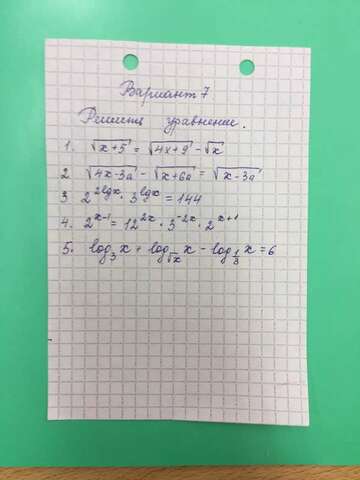 Вариант 7
Решить уравнение.
1. √x+5 = √4x+9 - √x
2 √4x-3a - √x+6a = √x-3a
3 2^2lgx · 3^lgx = 144
4. 2^x-1 = 12^2x · 3^-2x · 2^x+1
5. log_3 x + log_√x x - log_1/3 x = 6